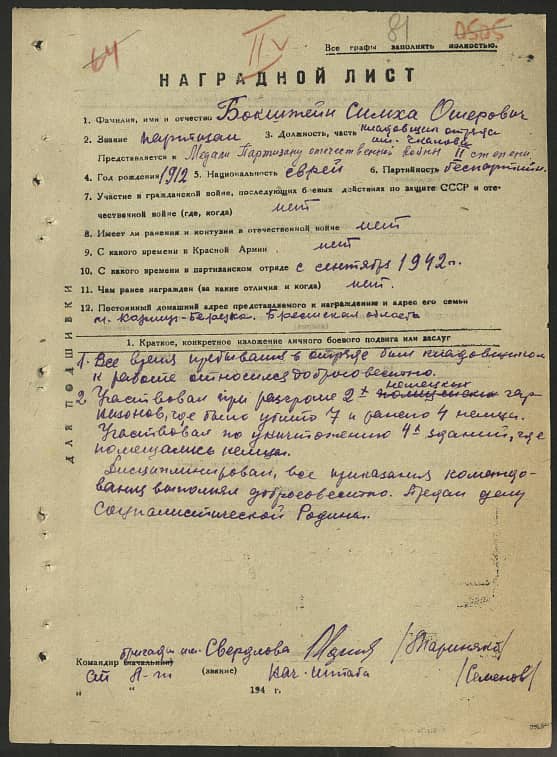 64
II v
81
0505
Все графы заполнять полностью.
НАГРАДНОЙ ЛИСТ
1. Фамилия, имя и отчество Бокштейн Симха Ошерович
2. Звание партизан 3. Должность, часть кладовщик отряда
им. Чкалова
Представляется к Медали Партизану отечественной войны II степени.
4. Год рождения 1912 5. Национальность еврей 6. Партийность беспартийн.
7. Участие в гражданской войне, последующих боевых действиях по защите СССР и оте-
чественной войне (где, когда) нет
8. Имеет ли ранения и контузии в отечественной войне нет
9. С какого времени в Красной Армии нет
10. С какого времени в партизанском отряде с сентября 1942 г.
11. Чем ранее награжден (за какие отличия и когда) нет.
12. Постоянный домашний адрес представляемого к награждению и адрес его семьи
м. Картуз-Береза. Брестская область
ДЛЯ ПОДШИВКИ
1. Краткое, конкретное изложение личного боевого подвига или заслуг
1. Все время пребывания в отряде был кладовщиком
к работе относился добросовестно.
2. Участвовал при разгроме 2х немецких гар
низонов, где было убито 7 и ранено 4 немца.
Участвовал по уничтожению 4х зданий, где
помещались немцы.
Дисциплинирован, все приказания командо-
вания выполнял добросовестно. Предан делу
Социалистической Родины.
Командир (начальник) бригады им. Свердлова
(звание) Нач. штаба /Семенов/
" " 194 г.